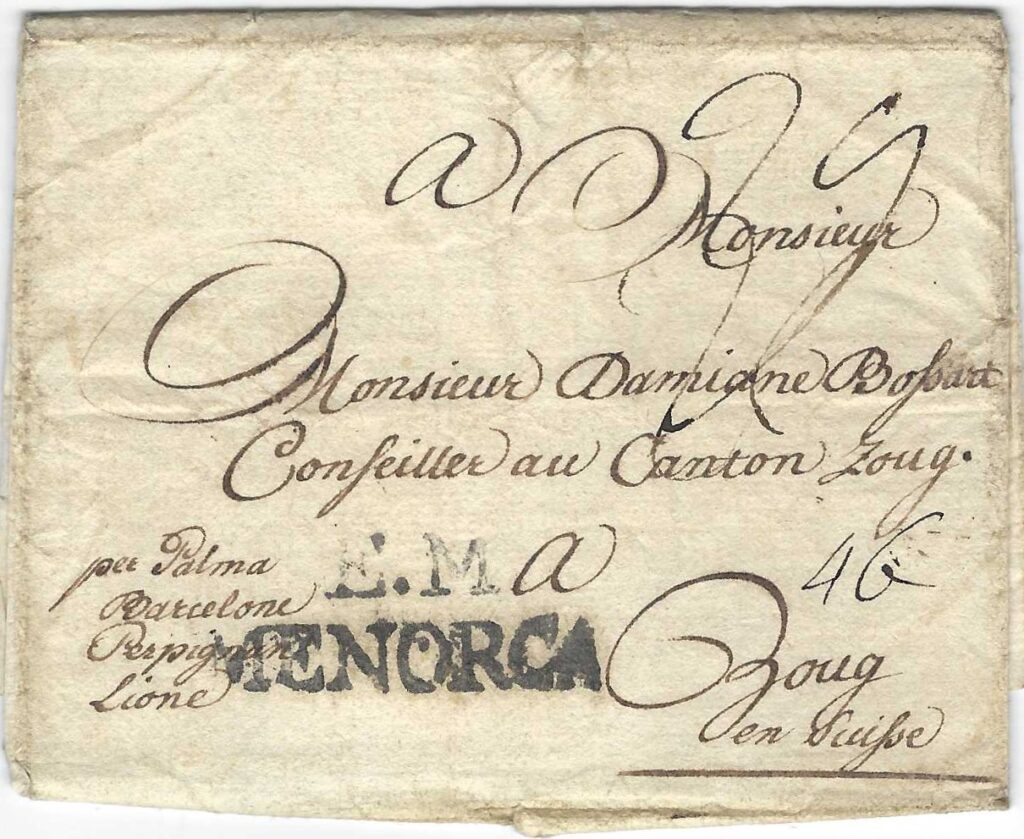 a Monsieur
Monsieur Damiane Bossart
Conseiller au Canton Zoug.
per Palma
Barcelone
Perpignan
Lione
E.M
MENORCA
a
46
Zoug
en Suisse